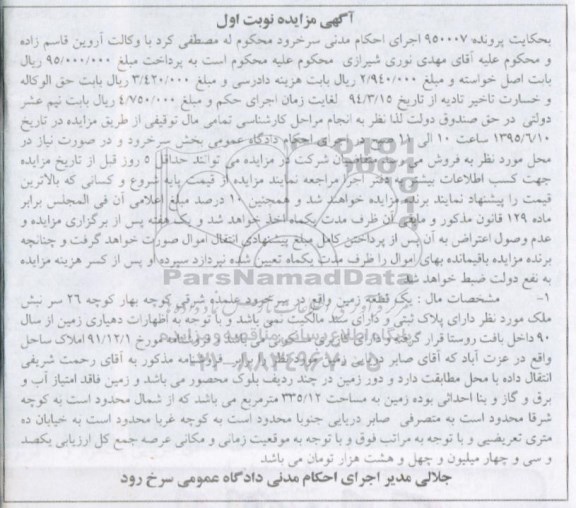 آگهی مزایده نوبت اول
بحکایت پرونده ۹۵۰۰۰۷ اجرای احکام مدنی سرخرود محکوم له مصطفی کرد با وکالت آروین قاسم زاده
و محکوم علیه آقای مهدی نوری شیرازی محکوم علیه محکوم است به پرداخت مبلغ ۹۵/۰۰۰/۰۰۰ ریال
بابت اصل خواسته و مبلغ ۲/۹۴۰/۰۰۰ ریال بابت هزینه دادرسی و مبلغ ۳/۴۲۰/۰۰۰ ریال بابت حق الوکاله
و خسارت تاخیر تادیه از تاریخ ۹۴/۳/۱۵ لغایت زمان اجرای حکم و مبلغ ۴/۷۵۰/۰۰۰ ریال بابت نیم عشر
دولتی در حق صندوق دولت لذا نظر به انجام مراحل کارشناسی تمامی مال توقیفی از طریق مزایده در تاریخ
۱۳۹۵/۶/۱۰ ساعت ۱۰ الی ۱۱ صبح در اجرای احکام دادگاه عمومی بخش سرخرود و در صورت نیاز در
محل مورد نظر به فروش می رسد متقاضیان شرکت در مزایده می توانند حداقل ۵ روز قبل از تاریخ مزایده
جهت کسب اطلاعات بیشتر به دفتر اجرا مراجعه نمایند مزایده از قیمت پایه شروع و کسانی که بالاترین
قیمت را پیشنهاد نمایند برنده مزایده خواهند شد و همچنین ۱۰ درصد مبلغ اعلامی آن فی المجلس برابر
ماده ۱۲۹ قانون مذکور و مابقی آن ظرف مدت یکماه اخذ خواهد شد و یک هفته پس از برگزاری مزایده و
عدم وصول اعتراض به آن پس از پرداختن کامل مبلغ پیشنهادی انتقال اموال صورت خواهد گرفت و چنانچه
برنده مزایده باقیمانده بهای اموال را ظرف مدت یکماه تعیین شده نپردازد سپرده او پس از کسر هزینه مزایده
به نفع دولت ضبط خواهد شد
۱- مشخصات مال : یک قطعه زمین واقع در سرخرود علمده شرقی کوچه بهار کوچه ۲۶ سر نبش
ملک مورد نظر دارای پلاک ثبتی و دارای سند مالکیت نمی باشد و با توجه به اظهارات دهیاری زمین از سال
۹۰ داخل بافت روستا قرار گرفته و دارای کاربری مسکونی می باشد فروشنامه مورخ ۹۱/۱۲/۱ املاک ساحل
واقع در عزت آباد که آقای صابر دریایی زمین مورد نظر را برابر فروشنامه مذکور به آقای رحمت شریفی
انتقال داده با محل مطابقت دارد و دور زمین در چند ردیف بلوک محصور می باشد و زمین فاقد امتیاز آب و
برق و گاز و بنا احداثی بوده زمین به مساحت ۳۳۵/۱۲ مترمربع می باشد که از شمال محدود است به کوچه
شرقا محدود است به متصرفی صابر دریایی جنوبا محدود است به کوچه غربا محدود است به خیابان ده
متری تعریضی و با توجه به مراتب فوق و با توجه به موقعیت زمانی و مکانی عرصه جمع کل ارزیابی یکصد
و سی و چهار میلیون و چهل و هشت هزار تومان می باشد
جلالی مدیر اجرای احکام مدنی دادگاه عمومی سرخ رود
ParsNamadData